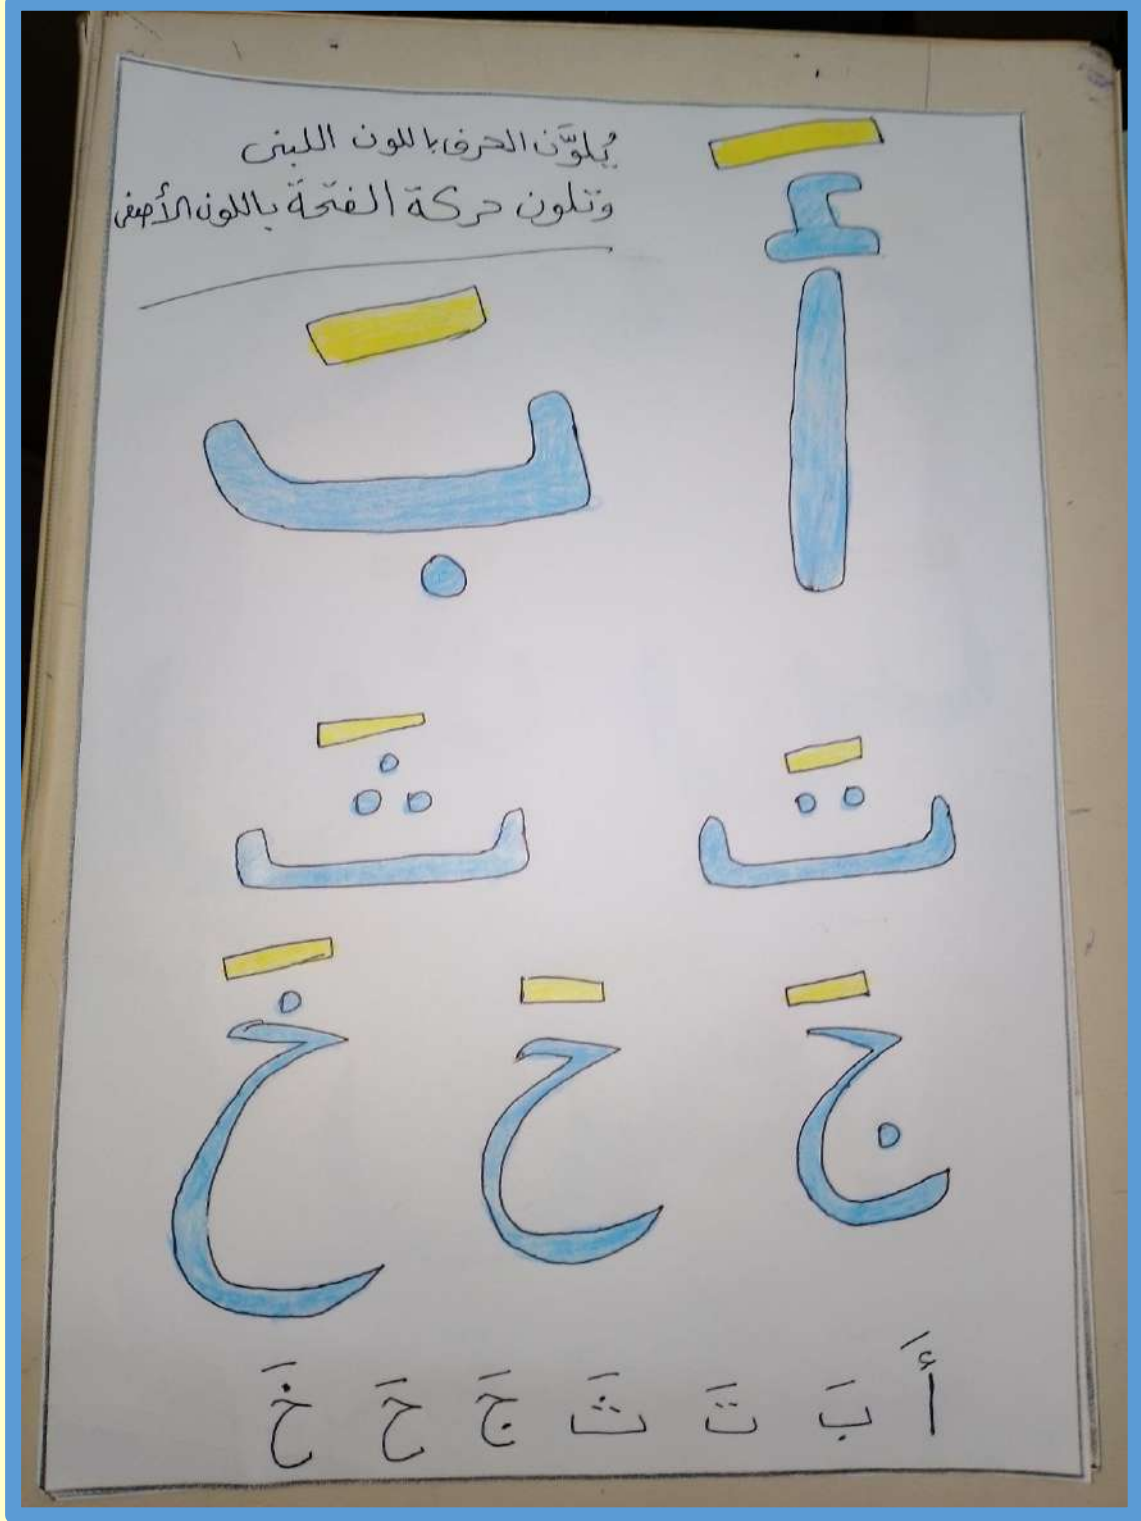 يُلوَّن الحرف باللون اللبنى
وتلون حركة الفتحة باللون الأصفر
أَ بَ
تَ ثَ
جَ حَ خَ
أَ بَ تَ ثَ جَ حَ خَ